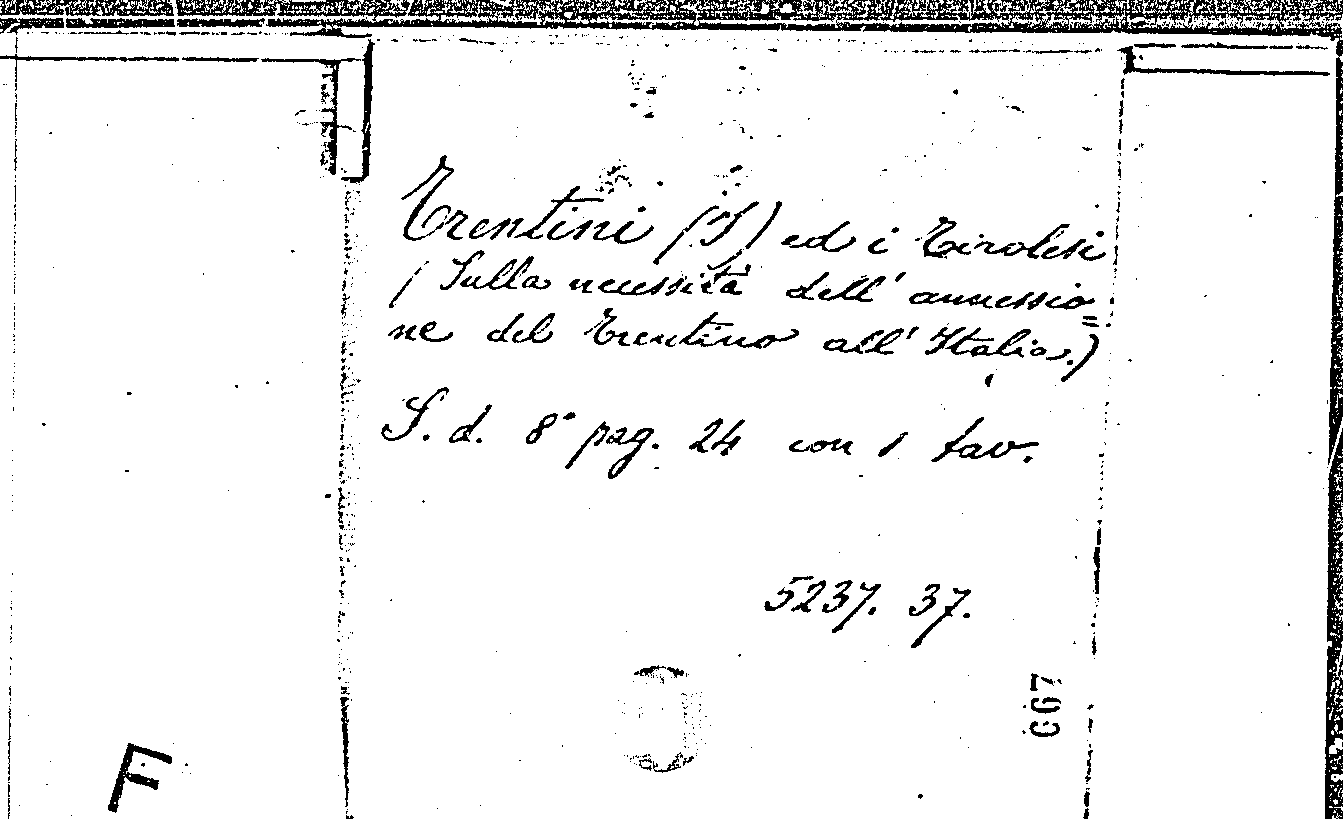 Trentini (I) ed i Tirolesi
(Sulla necessità dell' annessio=
ne del Trentino all' Italia.)
S. d. 8° pag. 24 con 1 tav.
5237. 37.
667
F